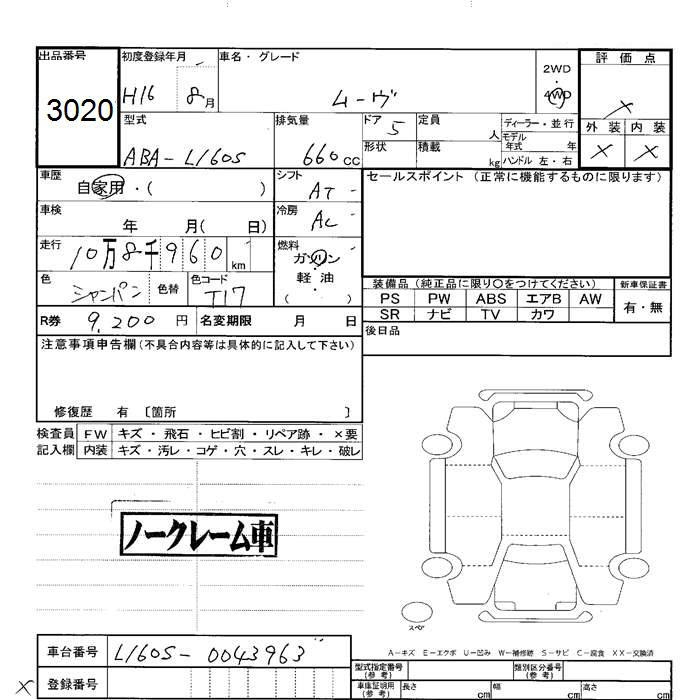 出品番号 初度登録年月 車名・グレード 2WD 評価点
3020 H16 8月 ムーヴ ・4WD ×
型式 排気量 ドア 5 定員 人 ディーラー・並行 外装 内装
ABA-L160S 660cc 形状 積載 kg モデル年式 年 × ×
ハンドル 左・右
車歴 自家用・( ) シフト AT- セールスポイント (正常に機能するものに限ります)
車検 年 月( 日) 冷房 AC-
走行 10万8千960km 燃料 ガソリン
・軽油
( )・
色 シャンパン 色替 色コード T17 装備品 (純正品に限り○をつけてください) 新車保証書
PS PW ABS エアB AW 有・無
R券 9,200円 名変期限 月 日 SR ナビ TV カワ
注意事項申告欄(不具合内容等は具体的に記入して下さい) 後日品
修復歴 有 〔箇所 〕
検査員 FW キズ・飛石・ヒビ割・リペア跡・×要
記入欄 内装 キズ・汚レ・コゲ・穴・スレ・キレ・破レ
ノークレーム車
スペア
A-キズ E-エクボ U-凹み W-補修跡 S-サビ C-腐食 XX-交換済
車台番号 L160S-0043963 型式指定番号(参考) 類別区分番号(参考)
× 登録番号 車庫証明用(参考) 長さ cm 幅 cm 高さ cm